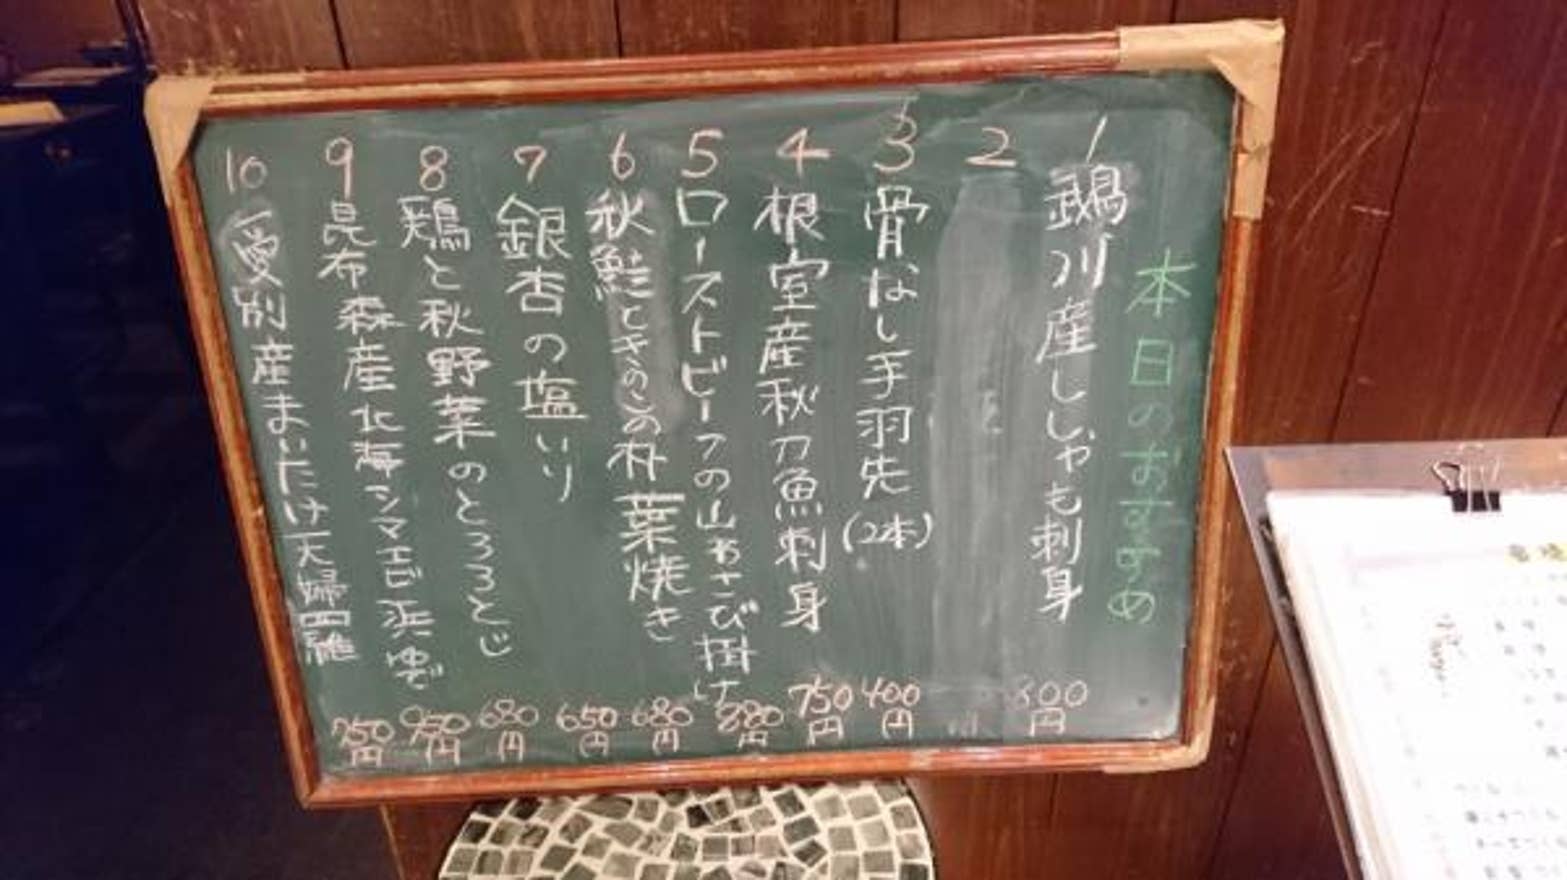 本日のおすすめ
1 鵡川産ししゃも刺身 800円
2
3 骨なし手羽先(2本) 400円
4 根室産秋刀魚刺身 750円
5 ローストビーフの山わさび掛け 880円
6 秋鮭ときのこの朴葉焼き 680円
7 銀杏の塩いり 650円
8 鶏と秋野菜のとろろとじ 680円
9 昆布森産北海シマエビ浜ゆで 950円
10 愛別産まいたけ天婦羅 750円